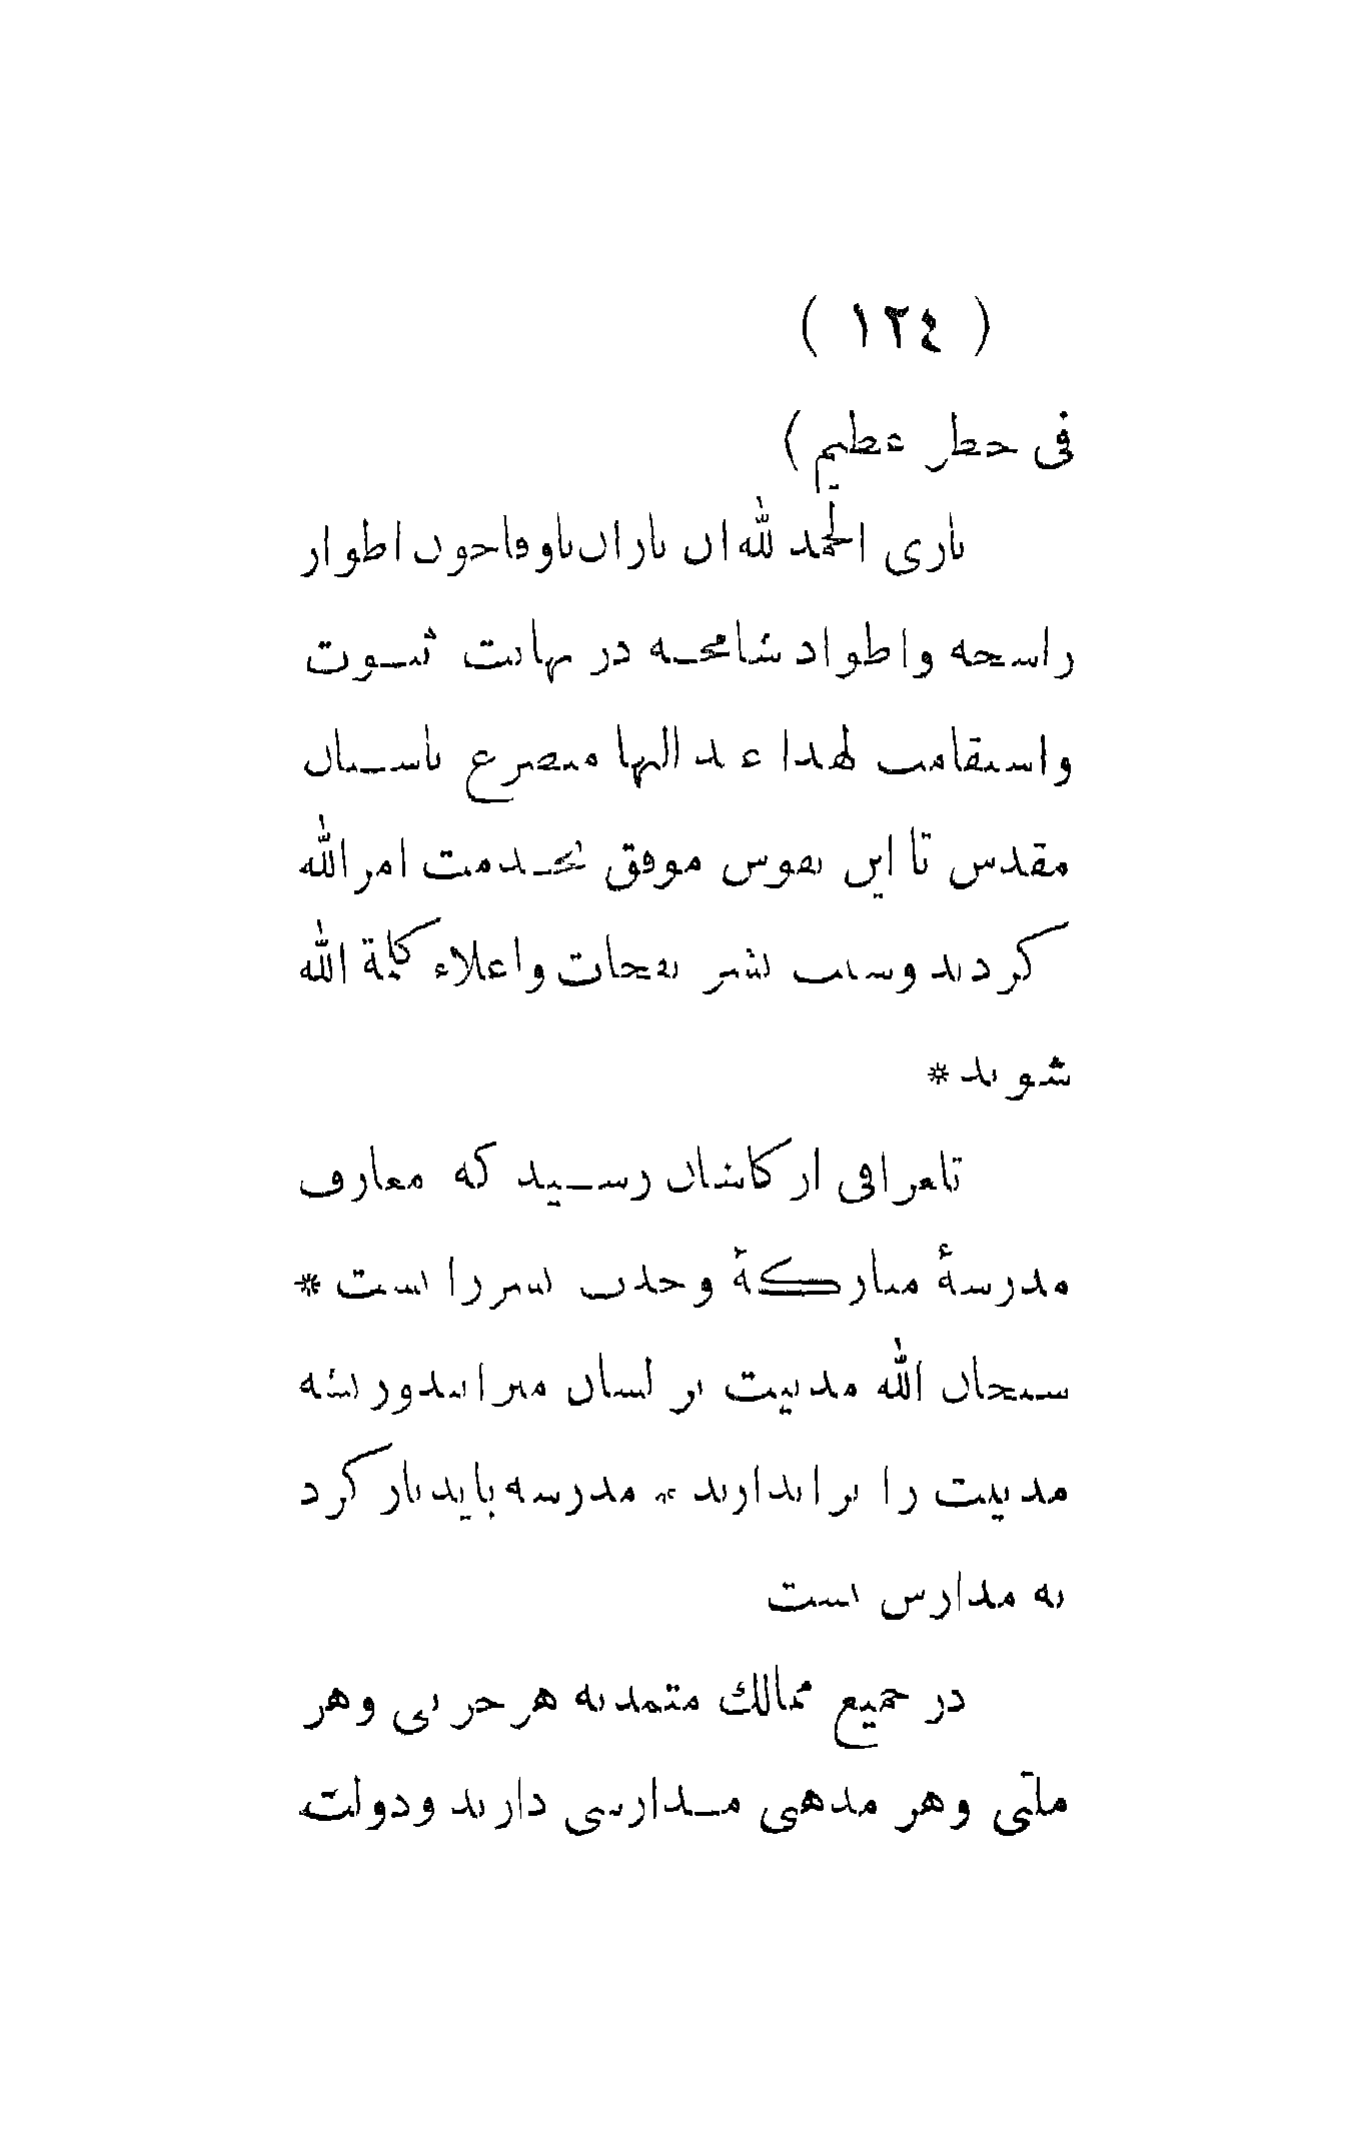 ( ١٢٤ )
فی خطر عظیم )
باری الحمد لله ان یاران باوفا چون اطوار
راسخه واطواد شامخـه در نهایت ثبـوت
واستقامت لهذا عبد البها متضرع بآسـتان
مقدس تا این نفوس موفق بخـدمت امرالله
کردند وسبب نشر نفحات واعلاء کلمة الله
شوند *
تلغرافی از کاشان رسـید که معارف
مدرسهٔ مبارکهٔ وحدت بشر را بست *
سبحان الله مدنیت بر لسان میرانند وریشه
مدنیت را بر اندازند * مدرسه باید باز کرد
نه مدارس بست
در جمیع ممالك متمدنه هر حزبی وهر
ملتی وهر مذهبی مـدارسی دارند ودولت